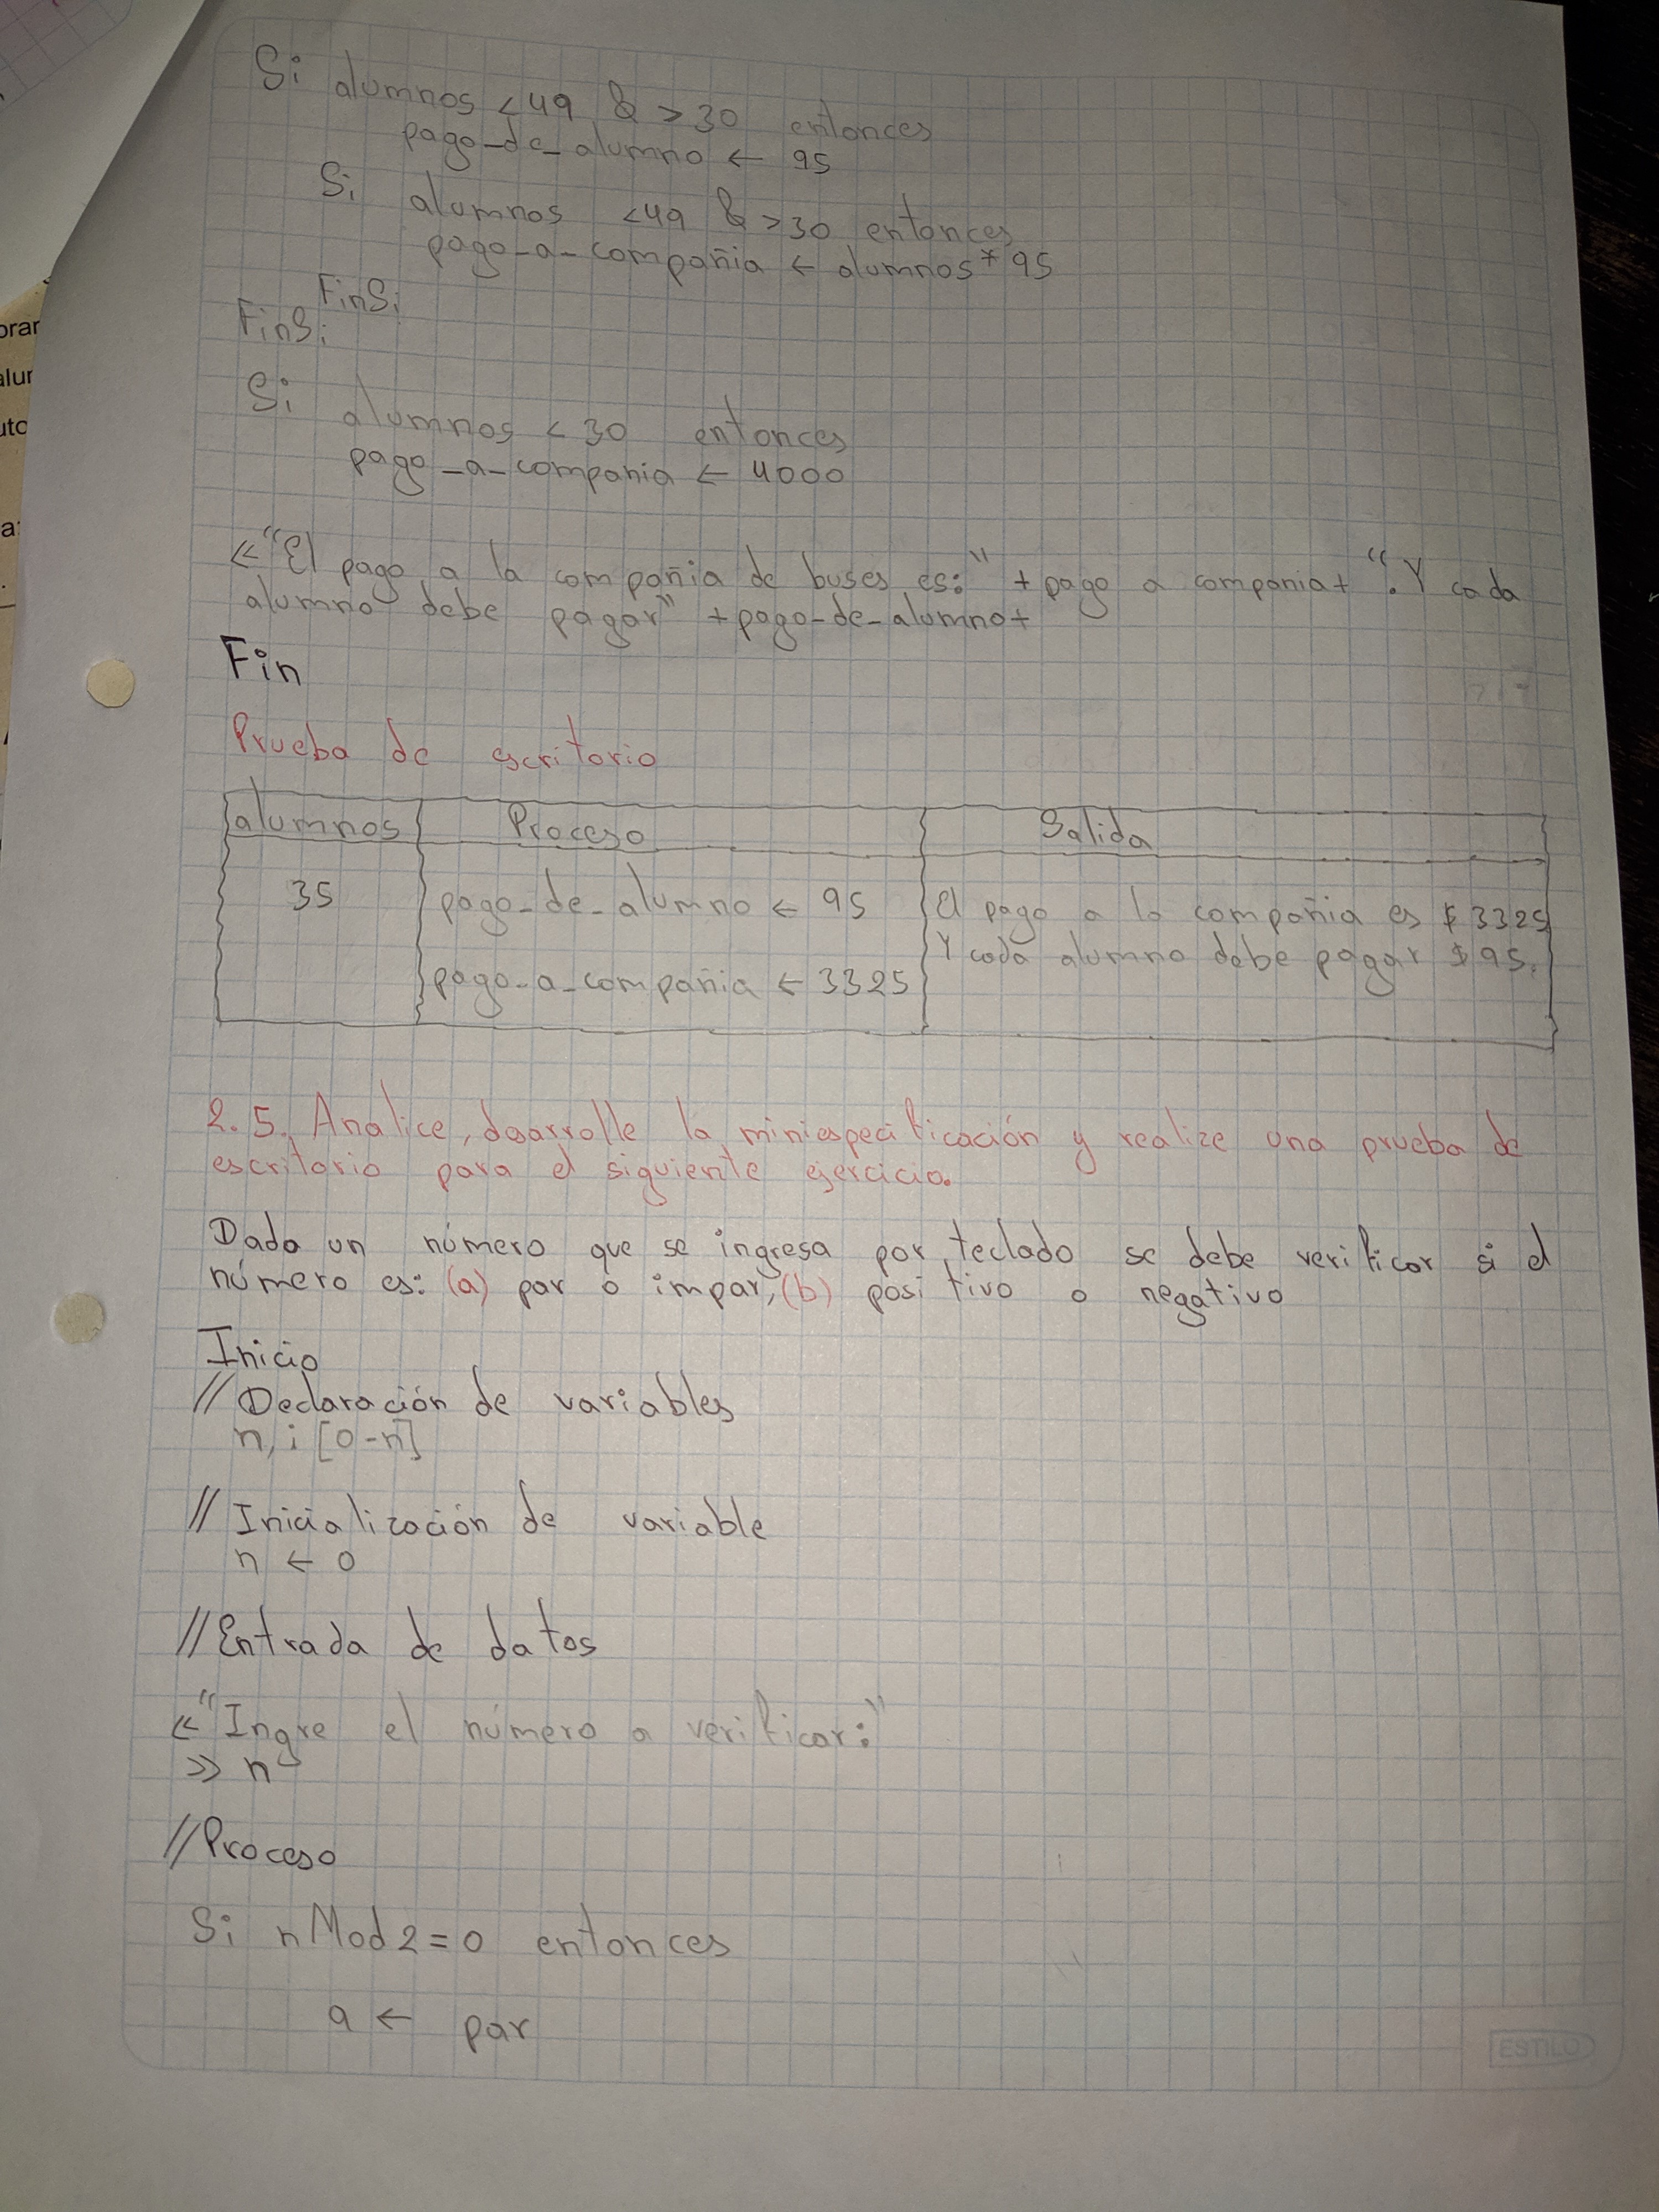 Si alumnos <49 & >30 entonces
pago_de_alumno ← 95
Si alumnos <49 & >30 entonces
pago_a_compañia ← alumnos * 95
FinSi
FinSi
Si alumnos < 30 entonces
pago_a_compania ← 4000
<< "El pago a la compañia de buses es:" + pago a compania + ". Y cada
alumno debe pagar" + pago_de_alumno +
Fin
Prueba de escritorio
alumnos Proceso Salida
35 pago_de_alumno ← 95 El pago a la compañia es $ 3325
Y cada alumno debe pagar $95.
pago_a_compañia ← 3325
2.5. Analice, desarrolle la miniespecificación y realize una prueba de
escritorio para el siguiente ejercicio.
Dado un número que se ingresa por teclado se debe verificar si el
número es: (a) par o impar, (b) positivo o negativo
Inicio
// Declaración de variables
n, i [0-n]
// Inicialización de variable
n ← 0
// Entrada de datos
<< "Ingre el número a verificar:"
>> n
// Proceso
Si n Mod 2 = 0 entonces
a ← par
ESTILO
orar
alur
uto
a: